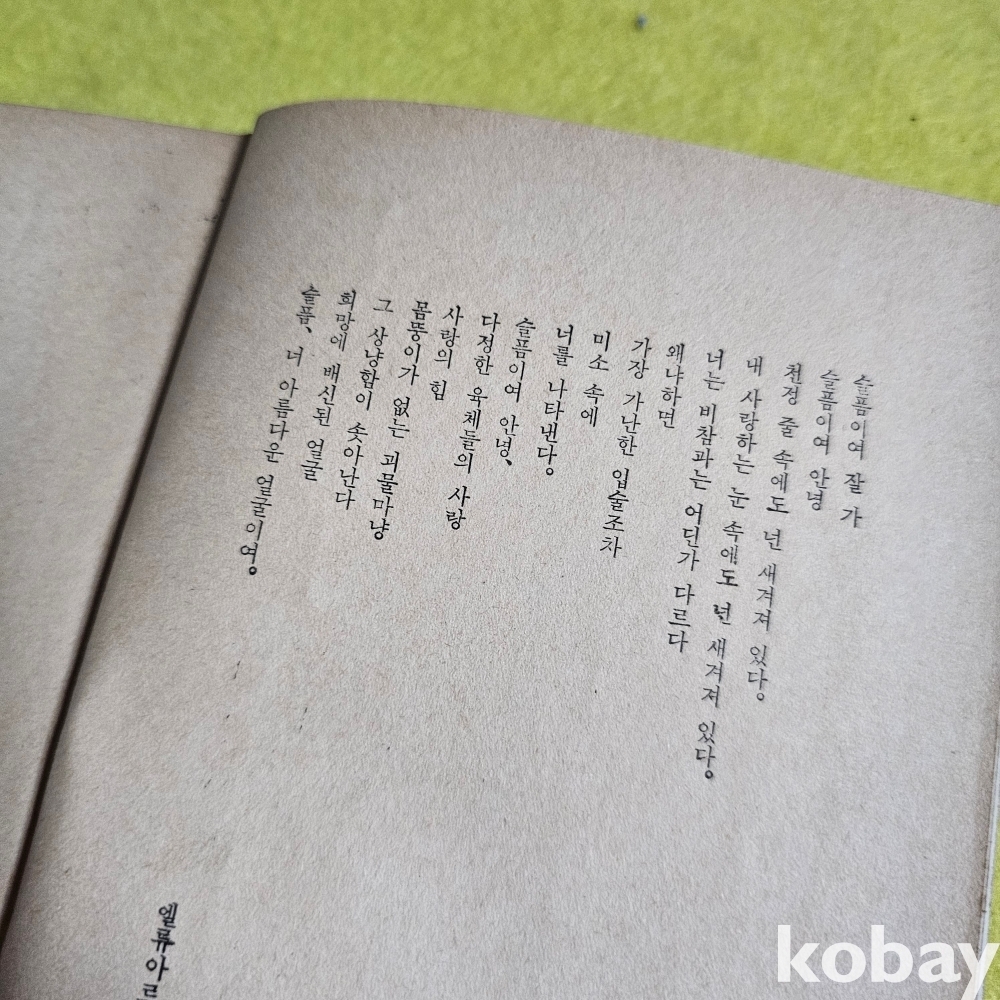 슬픔이여 잘 가
슬픔이여 안녕
천정 줄 속에도 넌 새겨져 있다。
내 사랑하는 눈 속에도 넌 새겨져 있다。
너는 비참과는 어딘가 다르다
왜냐하면
가장 가난한 입술조차
미소 속에
너를 나타낸다。
슬픔이여 안녕、
다정한 육체들의 사랑
사랑의 힘
몸뚱이가 없는 괴물마냥
그 상냥함이 솟아난다
희망에 배신된 얼굴
슬픔、 너 아름다운 얼굴이여。
엘류아르
kobay